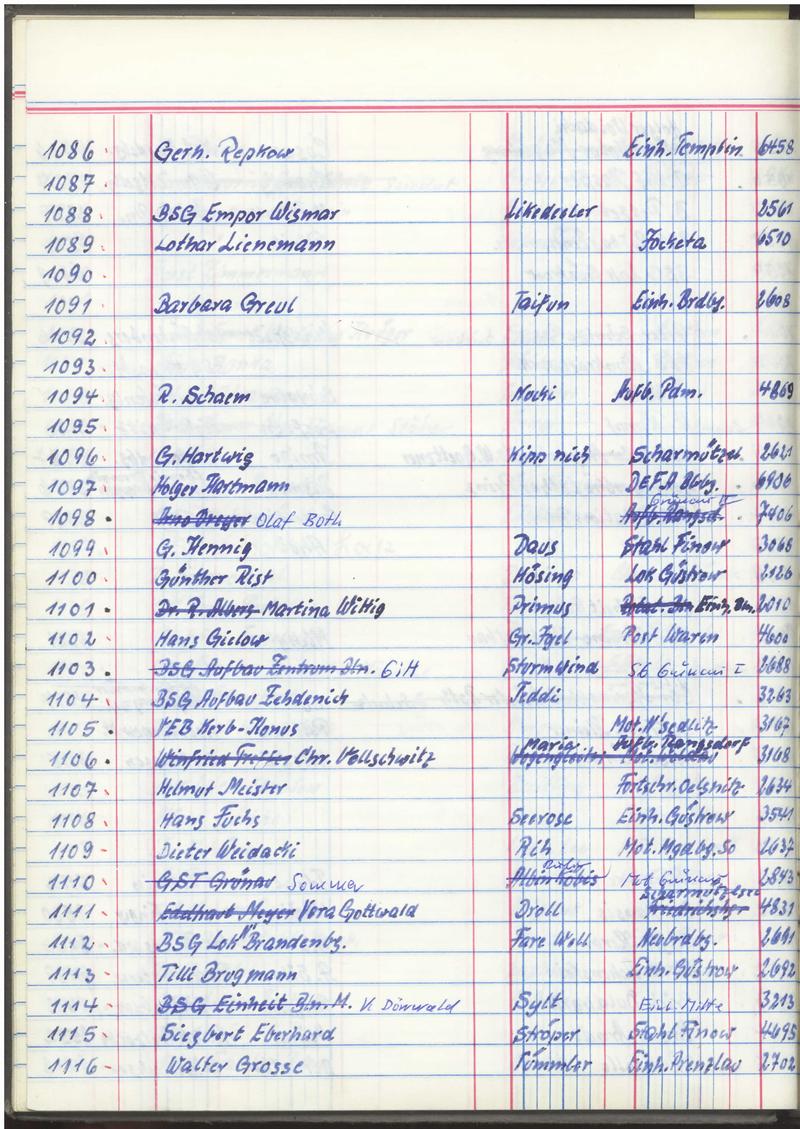 1086 Gerh. Repkow Einh. Templin 6458
1087
1088 BSG Empor Wismar Likedeeler 2561
1089 Lothar Lienemann Focketa 6510
1090
1091 Barbara Greul Taifun Einh. Brdbg. 2608
1092
1093
1094 R. Schaem Nocki Aufb. Pdm. 4869
1095
1096 G. Hartwig Kipp nich Scharmützel 2621
1097 Holger Hartmann DEFA Bbbg. 6906
1098 Arno Dreyer Olaf Both Aufb. Rangsd. Grünau II 7406
1099 G. Hennig Daus Stahl Finow 3068
1100 Günther Rist Hösing Lok Güstrow 2126
1101 Dr. R. Albers Martina Wittig Primus Einh. Bln. 2010
1102 Hans Gielow Gr. Igel Post Waren 4600
1103 BSG Aufbau Zentrum Bln. GiH Sturmwind SG Grünau I 2688
1104 BSG Aufbau Zehdenich Teddi 3263
1105 VEB Kerb-Konus Mot. N'sedlitz 3167
1106 Winfried Treffer Chr. Vollschwitz Maria Aufb. Rangsdorf 3168
1107 Helmut Meister Fortschr. Oelsnitz 2634
1108 Hans Fuchs Seerose Einh. Güstrow 3541
1109 Dieter Weidacki Rih Mot. Mgdbg. So 2637
1110 GST Grünau Sommer Albin Köbis Mot Grünau 2843
1111 Edelhart Meyer Vera Gottwald Droll Scharmützelsee Friedrichshgr 4831
1112 BSG Lok Brandenbg. Fare Well Neubrdbg. 2691
1113 Tilli Brugmann Einh. Güstrow 2692
1114 BSG Einheit Bln. M. V. Dörwald Sylt Einh. Mitte 3213
1115 Siegbert Eberhard Ströper Stahl Finow 4495
1116 Walter Grosse Tümmler Einh. Prenzlau 2702